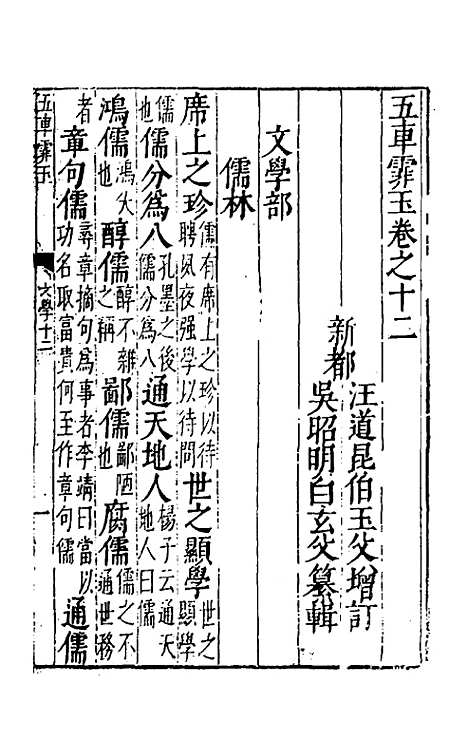 五車霏玉卷之十二
新都
汪道昆伯玉父增訂
吳昭明白玄父纂輯
文學部
儒林
席上之珍儒有席上之珍以待聘夙夜强學以待問世之顯學世之顯學
儒也儒分為八孔墨之後儒分為八通天地人楊子云通天地人曰儒
鴻儒鴻大也醇儒醇不雜之稱鄙儒鄙陋也腐儒儒之不通世務
者章句儒尋章摘句為事者李靖曰當以功名取富貴何至作章句儒通儒
五車霏玉 文學十二 一